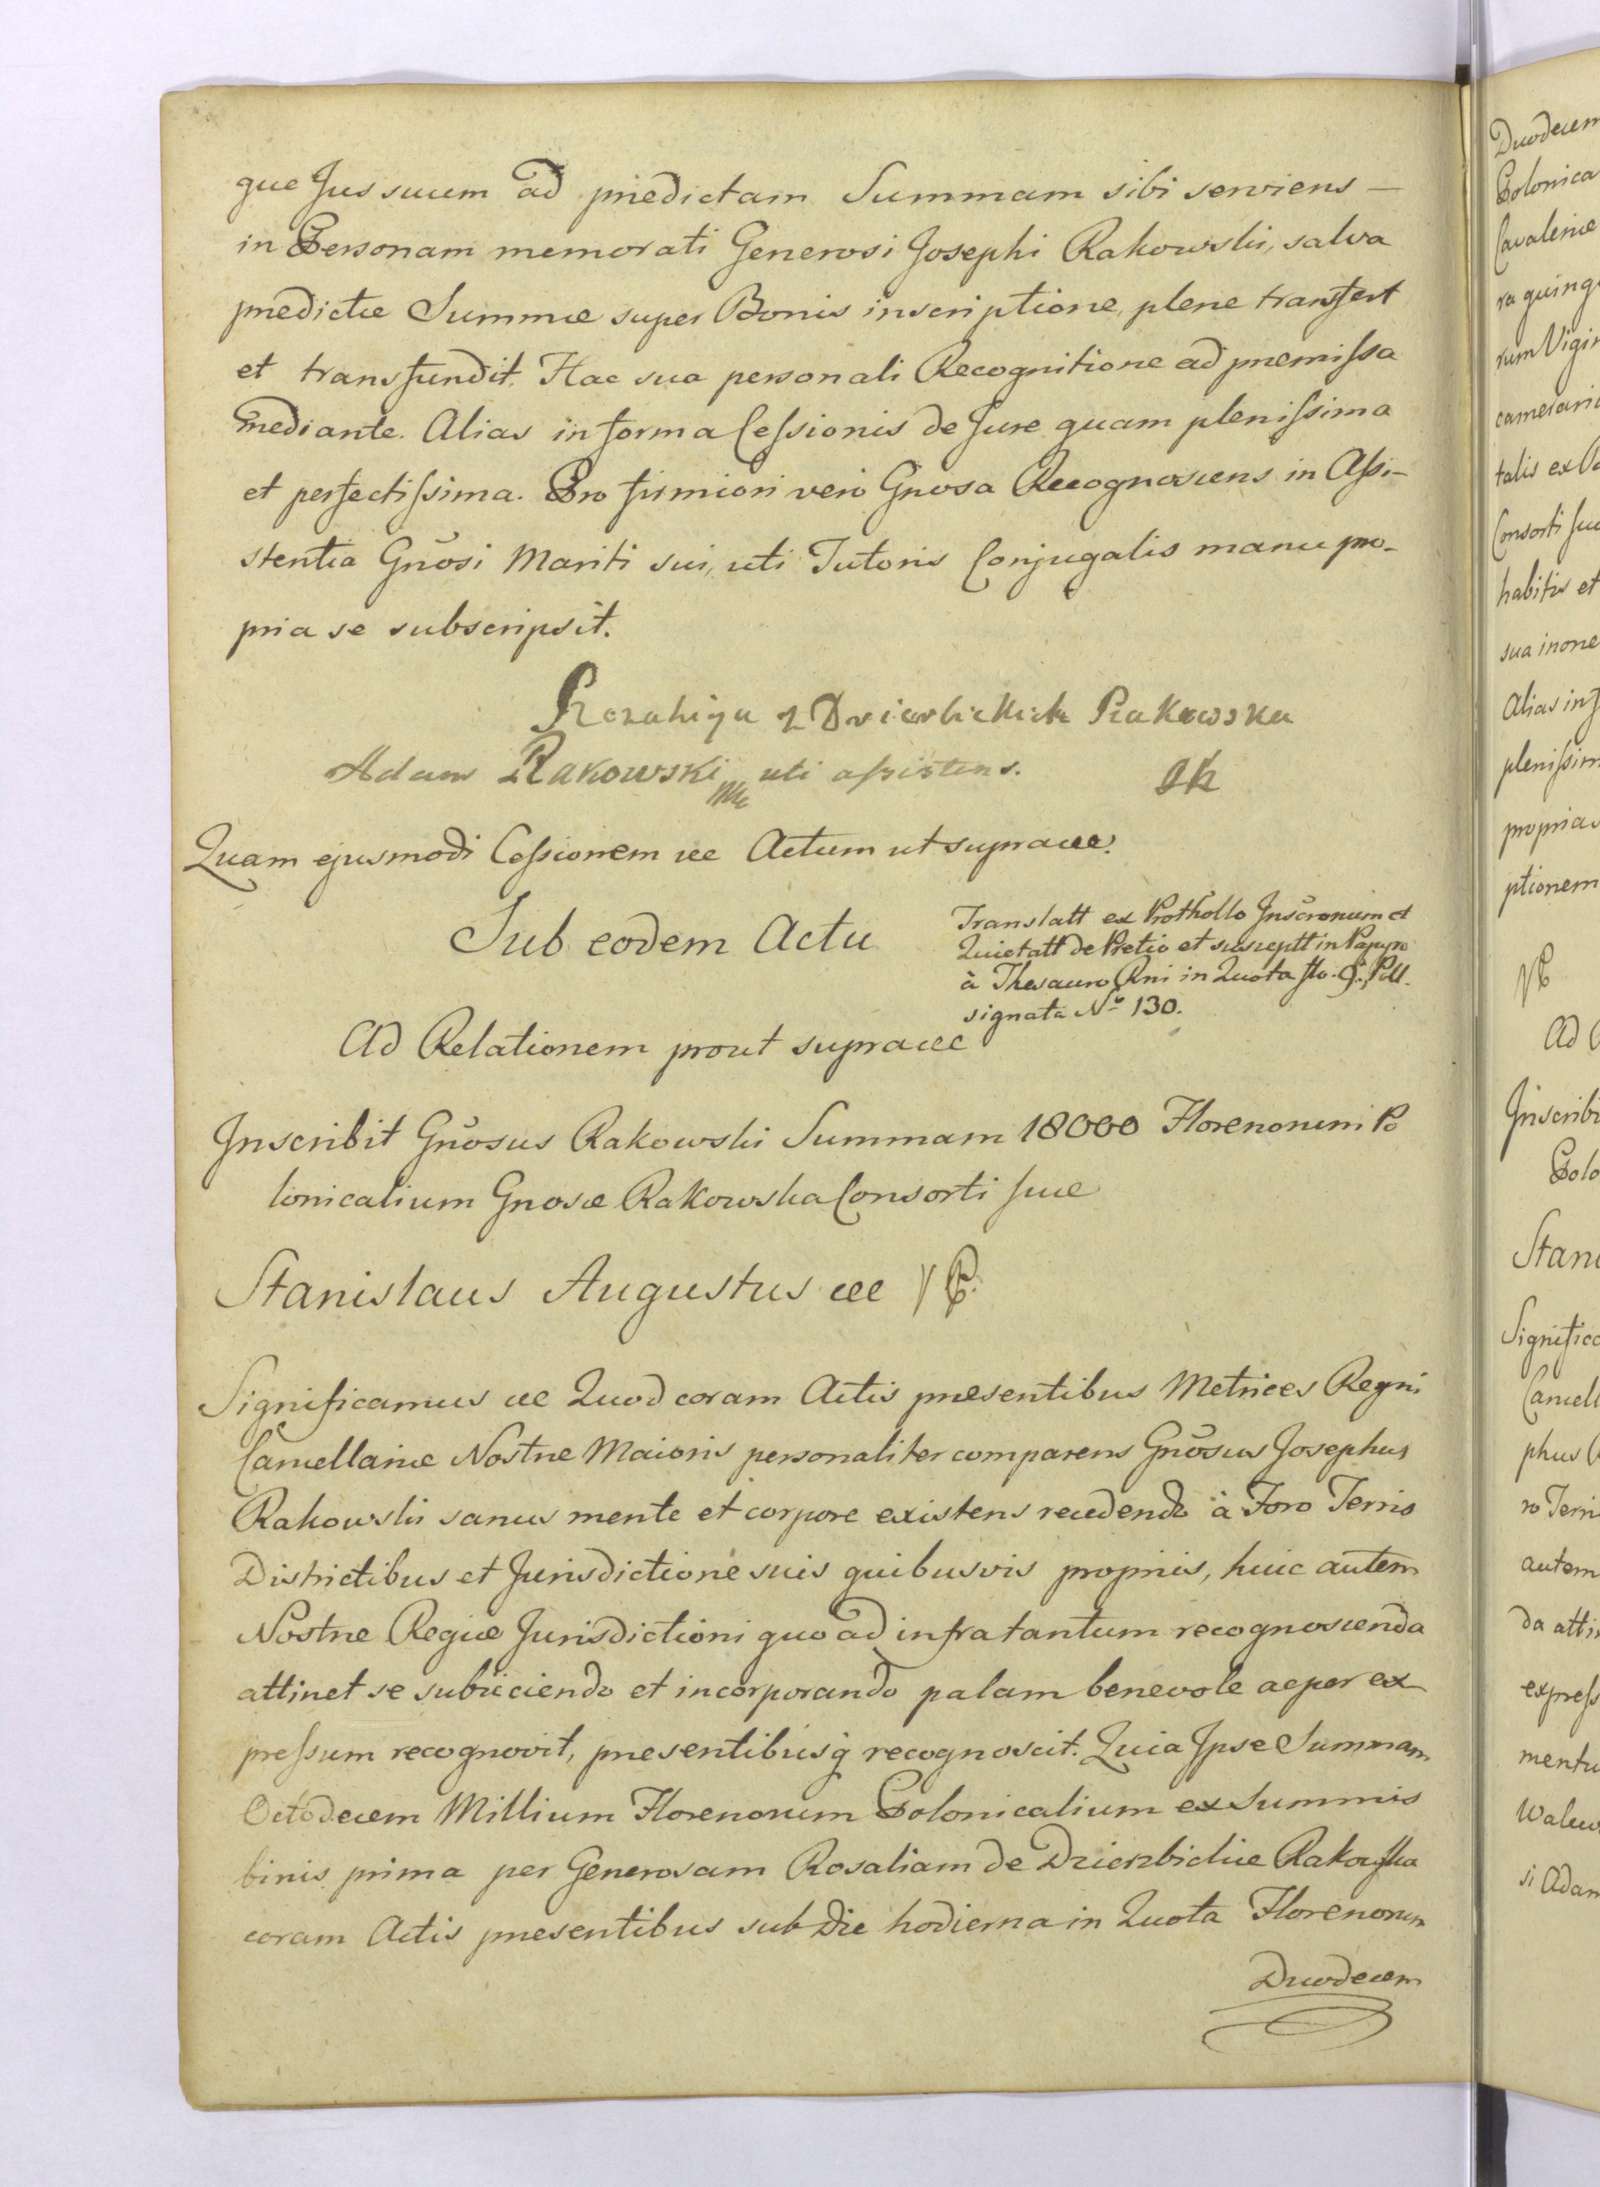 que Jus suum ad prædictam Summam sibi serviens —
in Personam memorati Generosi Josephi Rakowski, salva
prædictæ Summæ super Bonis inscriptione, plene transfert
et transfundit. Hac sua personali Recognitione ad præmissa
mediante. Alias in forma Cessionis de Jure quam plenissima
et perfectissima. Pro firmiori vero Gnosa Recognoscens in Assi-
stentia Gnõsi Mariti sui, uti Tutoris Conjugalis manu pro-
pria se subscripsit.
Rozalija z Dzierbickich Rakowska
Adam Rakowski mp uti assistens.
Quam ejusmodi Cessionem etc Actum ut supra etc.
Sub eodem Actu
Translatt ex Prothollo Inscronum et
Quietatt de Pretio et susceptt in Papyro
à Thesauro Rni in Quota flo. Poll.
signata No 130.
Ad Relationem prout supra etc
Inscribit Gnõsus Rakowski Summam 18000 Florenorum Po
lonicalium Gnosæ Rakowska Consorti suæ
Stanislaus Augustus etc
Significamus etc Quod coram Actis præsentibus Metrices Regni
Cancellariæ Nostræ Maioris personaliter comparens Gnõsus Josephus
Rakowski sanus mente et corpore existens recedendo à Foro Terris
Districtibus et Jurisdictione suis quibusvis propriis, huic autem
Nostræ Regiæ Jurisdictioni quo ad infra tantum recognoscenda
attinet se subiiciendo et incorporando palam benevole ac per ex
pressum recognovit, præsentibusq recognoscit. Quia Ipse Summam
Octodecem Millium Florenorum Polonicalium ex Summis
binis prima per Generosam Rosaliam de Dzierzbickie Rakowska
coram Actis præsentibus sub Die hodierna in Quota Florenorum
Duodecem
Duodecem
Polonica
Cancelariæ
ra quinq
rum Vigin
talis ex
Consorti su
habitis et
sua in
Alias in f
plenissim
propria
ptionem
Ad
Inscribi
Polo
Stani
Significa
Cancell
phus
ro Terri
autem
da atti
express
mentu
Walew
si Adam